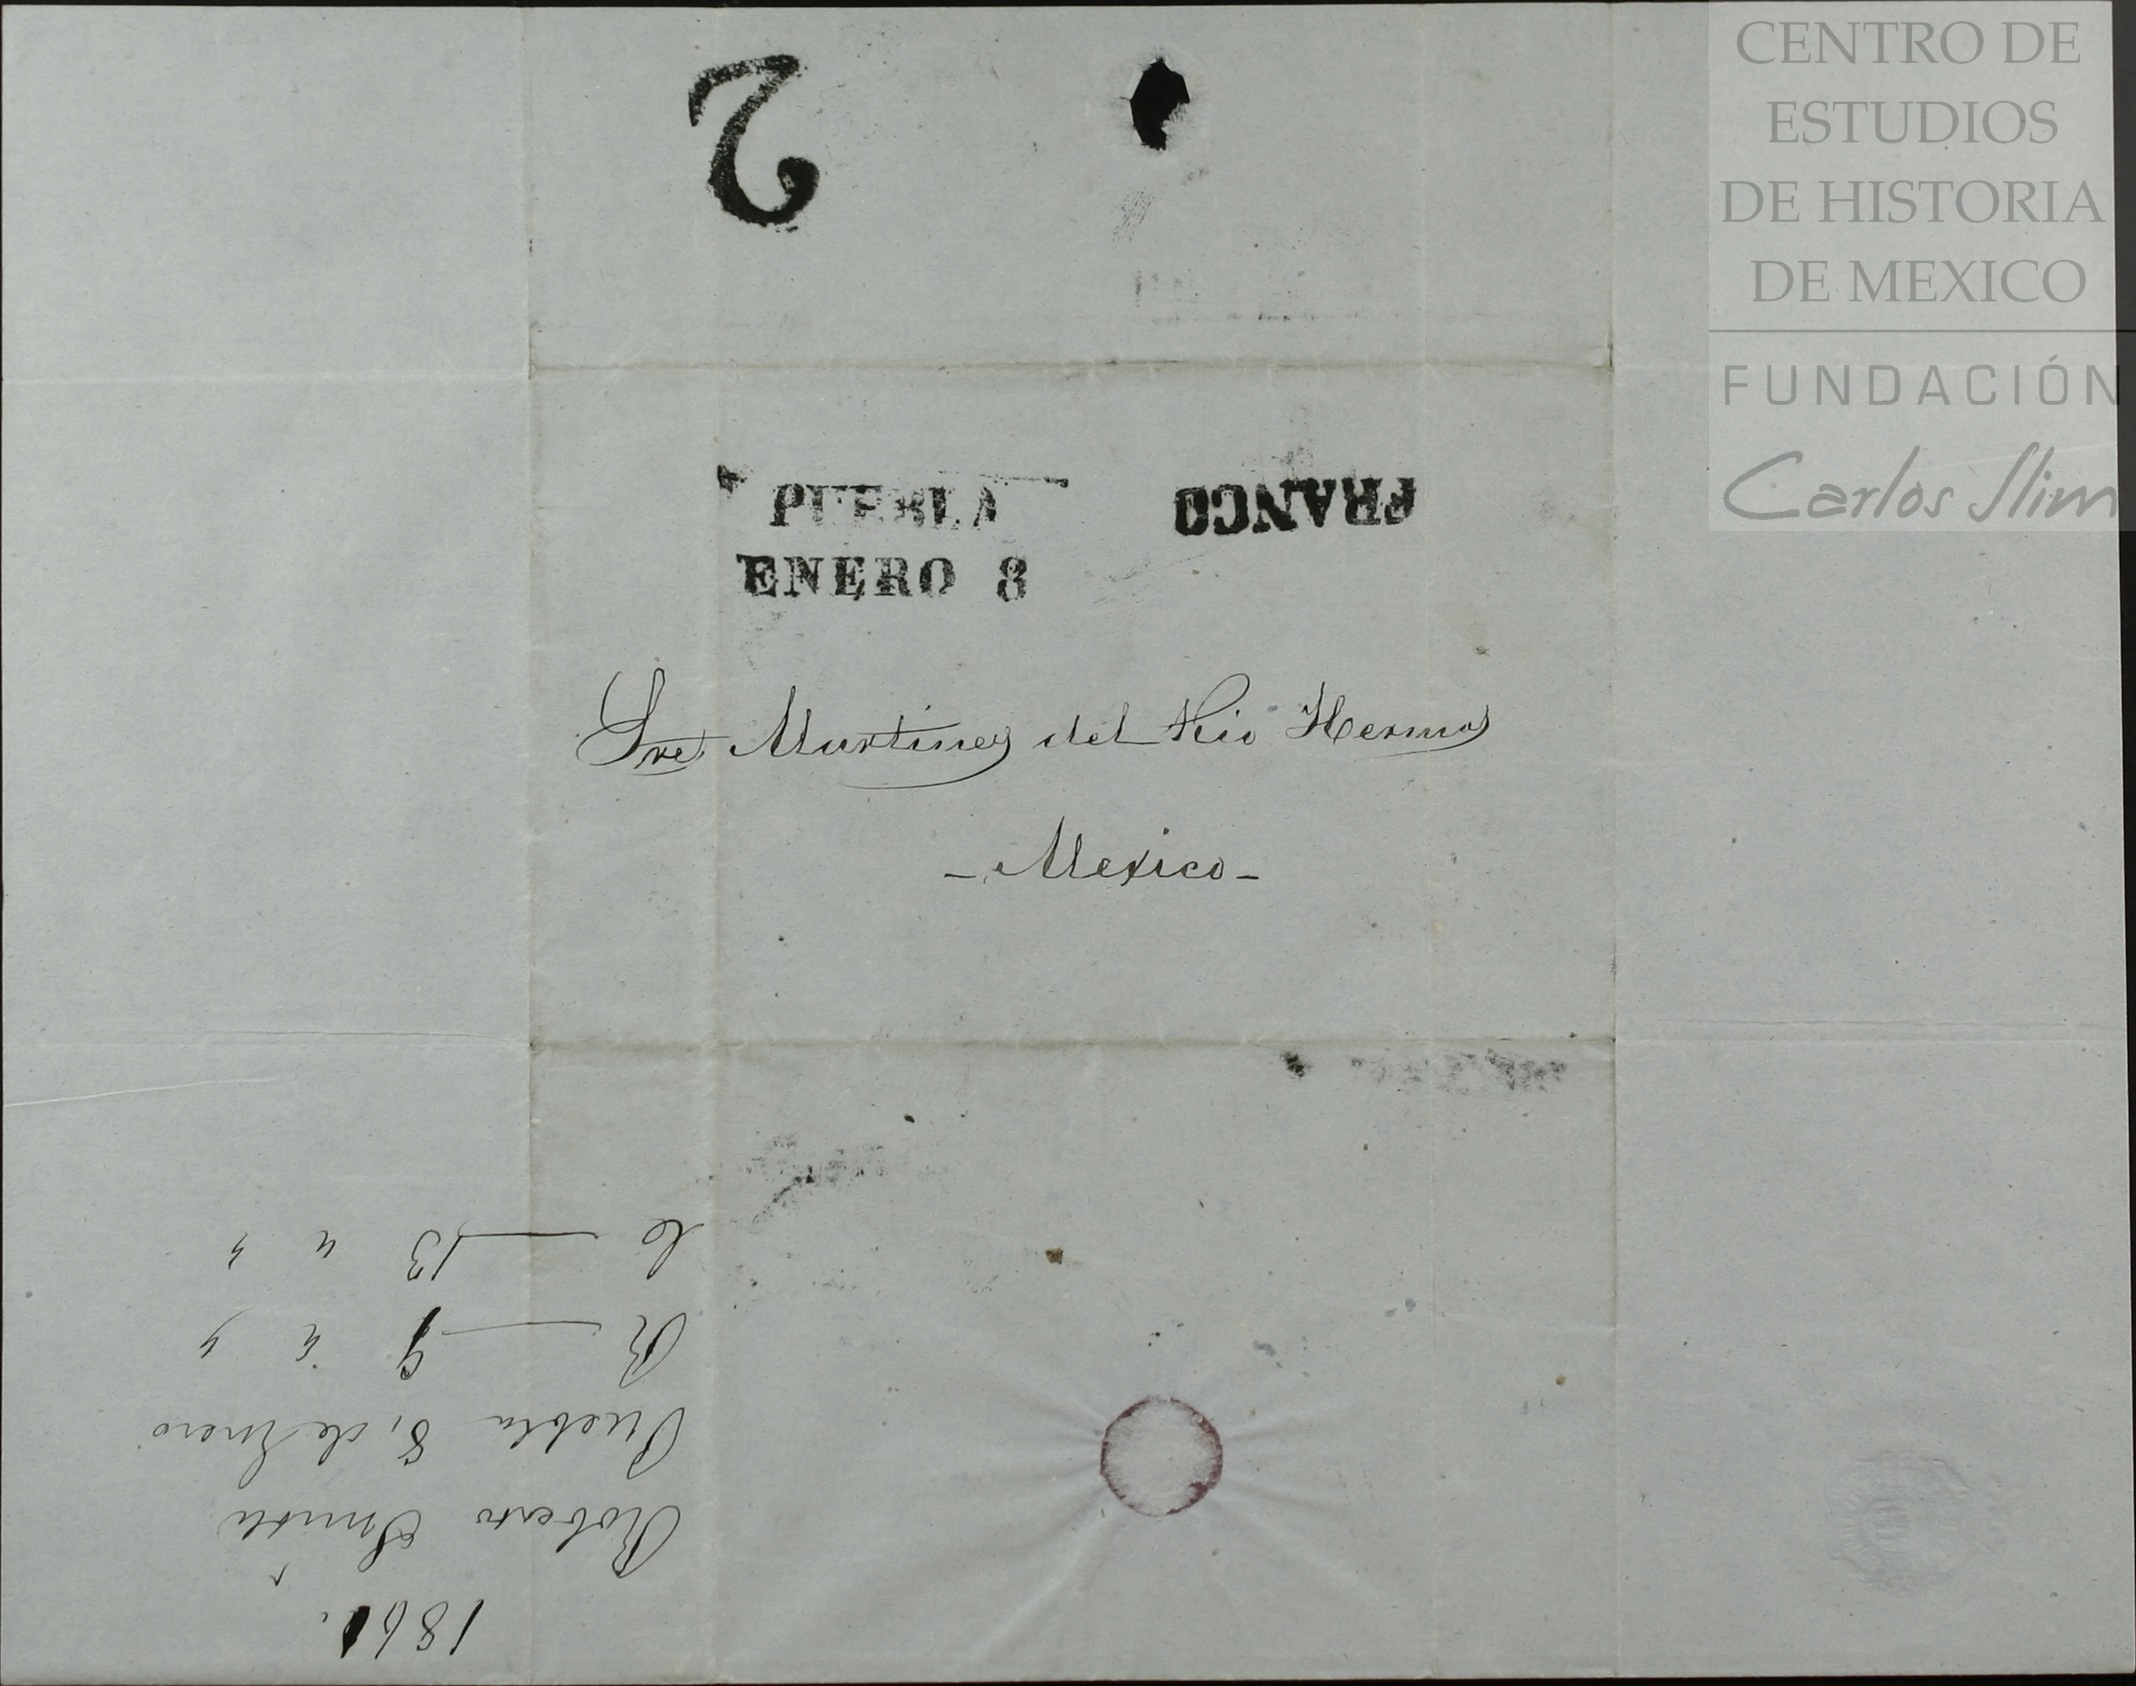 2
PUEBLA
ENERO 8
FRANCO
Sres Martinez del Rio Hermos
- Mexico -
1861.
Roberto Smith
Puebla 8, de Enero
R — 9 " "
C — 13 " "
CENTRO DE
ESTUDIOS
DE HISTORIA
DE MEXICO
FUNDACIÓN
Carlos Slim